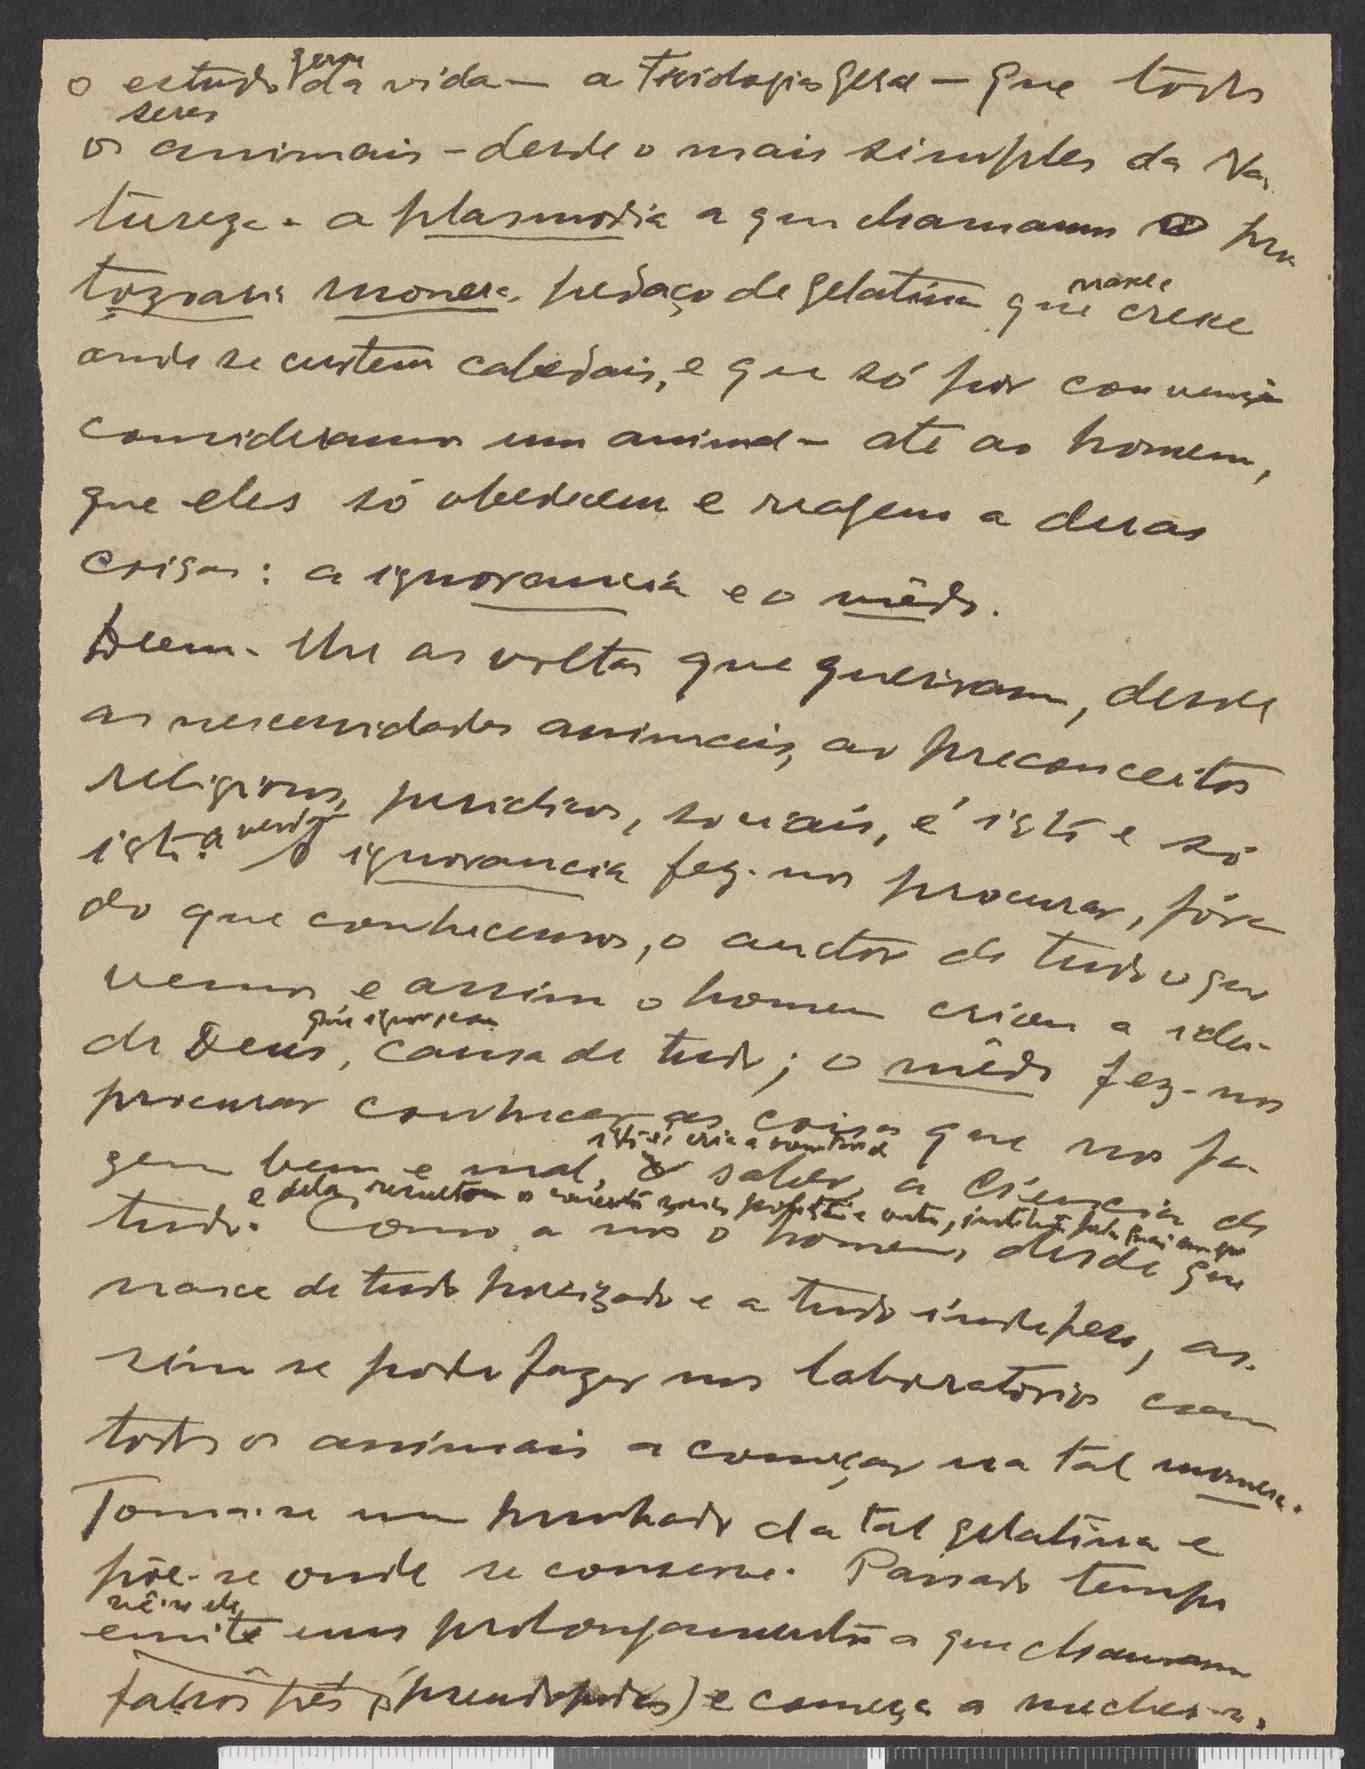 geral
o estudo da vida — a Fisiologia Geral — que todos
seres
os animais — desde o mais simples da Na-
tureza — a plasmodia a que chamamos pro
tozoaria monera, pedaço de gelatina que cresce
nasce e
onde se curtem cabedais, e que só por convenção
consideramos um animal — até ao homem,
que eles só obedecem e reagem a duas
coisas: a ignorancia e o mêdo.
Deem-lhe as voltas que queiram, desde
as necessidades animais, ao preconceitos
religiosos, juridicos, sociais, é isto e só
isto. A ignorancia fez-nos procurar, fóra
do que conhecemos, o auctor de tudo o que
vemos e assim o homem criou a ideia
de Deus, causa de tudo; o mêdo fez-nos
procurar conhecer as coisas que nos fa-
isto é cria a
zem bem e mal, o saber, a ciencia de
e dela resultou o
tudo. Como a nós o homem, desde que
nasce de tudo e a tudo indefeso, as-
sim se pode fazer nos laboratorios com
todos os animais a começar na tal monera.
Toma-se um punhado da tal gelatina e
põe-se onde se conserve. Passado tempo
vê-se ela
emite uns prolongamentos a que chamam
falsos pés (pseudopodes) e começa a mecher-se.